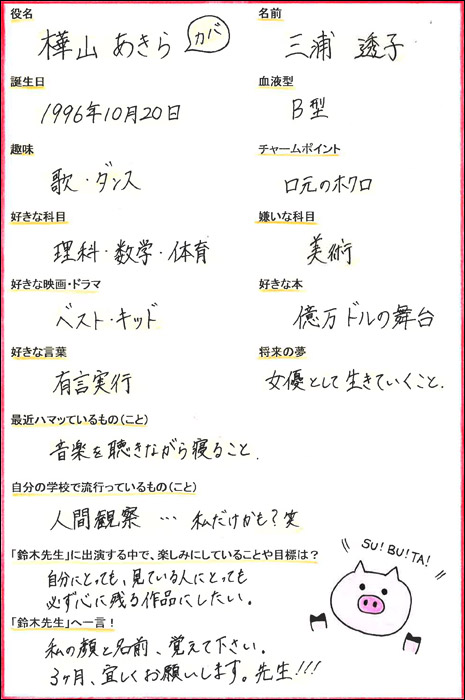 役名 名前
樺山 あきら カバ 三浦 透子
誕生日 血液型
1996年10月20日 B型
趣味 チャームポイント
歌・ダンス 口元のホクロ
好きな科目 嫌いな科目
理科・数学・体育 美術
好きな映画・ドラマ 好きな本
ベスト・キッド 億万ドルの舞台
好きな言葉 将来の夢
有言実行 女優として生きていくこと.
最近ハマッているもの(こと)
音楽を聴きながら寝ること.
自分の学校で流行っているもの(こと)
人間観察 … 私だけかも?笑
「鈴木先生」に出演する中で、楽しみにしていることや目標は?
自分にとっても、見ている人にとっても
必ず心に残る作品にしたい。
SU! BU! TA!
「鈴木先生」へ一言!
私の顔と名前、覚えて下さい。
3ヶ月、宜しくお願いします。先生!!!